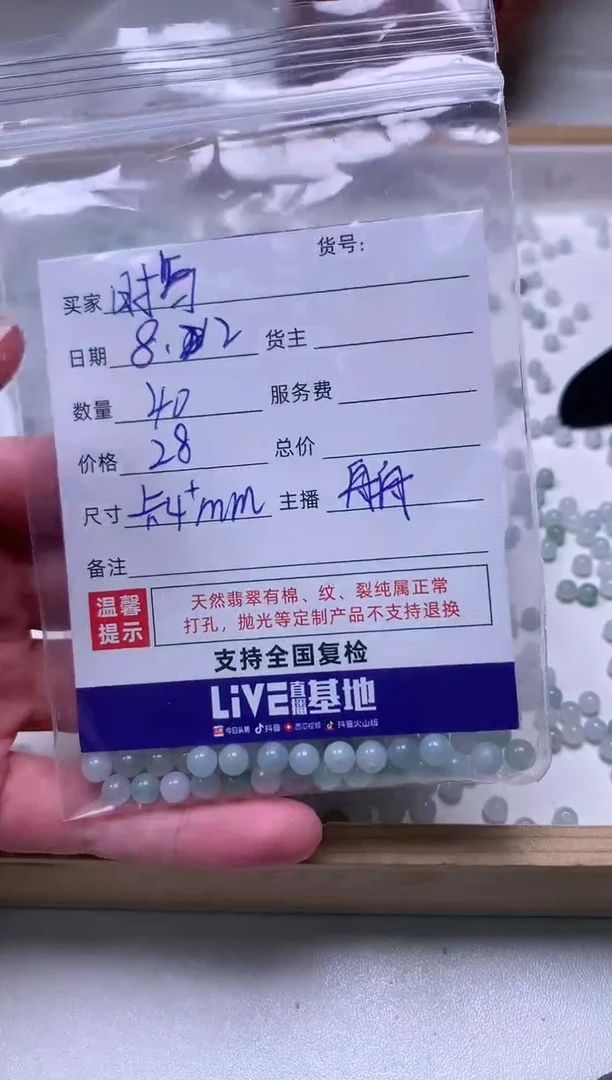 货号:
买家 时与
日期 8.12 货主
数量 40 服务费
价格 28 总价
尺寸 卡4+mm 主播 舟舟
备注
温馨提示
天然翡翠有棉、纹、裂纯属正常
打孔，抛光等定制产品不支持退换
支持全国复检
LiVE直播基地
今日头条 抖音 西瓜视频 抖音火山版